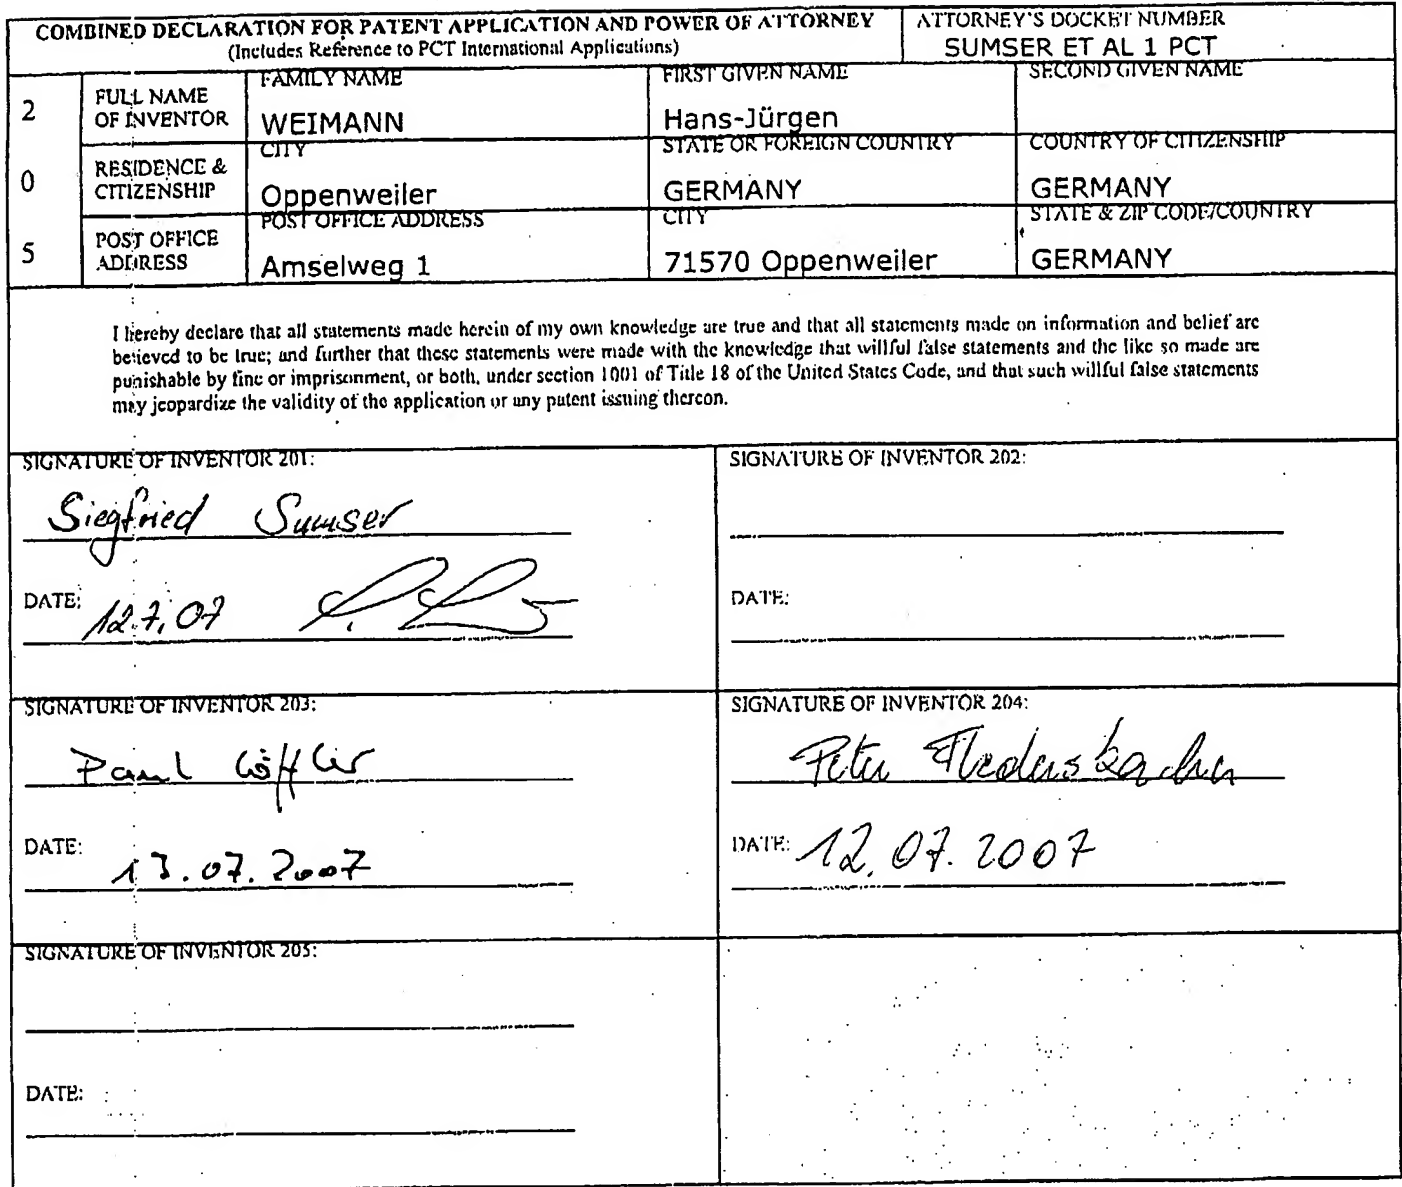 COMBINED DECLARATION FOR PATENT APPLICATION AND POWER OF ATTORNEY
(Includes Reference to PCT International Applications)
ATTORNEY'S DOCKET NUMBER
SUMSER ET AL 1 PCT
2 0 5
FULL NAME
OF INVENTOR
FAMILY NAME
WEIMANN
FIRST GIVEN NAME
Hans-Jürgen
SECOND GIVEN NAME
RESIDENCE &
CITIZENSHIP
CITY
Oppenweiler
STATE OR FOREIGN COUNTRY
GERMANY
COUNTRY OF CITIZENSHIP
GERMANY
POST OFFICE
ADDRESS
POST OFFICE ADDRESS
Amselweg 1
CITY
71570 Oppenweiler
STATE & ZIP CODE/COUNTRY
GERMANY
I hereby declare that all statements made herein of my own knowledge are true and that all statements made on information and belief are
believed to be true; and further that these statements were made with the knowledge that willful false statements and the like so made are
punishable by fine or imprisonment, or both, under section 1001 of Title 18 of the United States Code, and that such willful false statements
may jeopardize the validity of the application or any patent issuing thereon.
SIGNATURE OF INVENTOR 201:
Siegfried Sumser
DATE: 12.7.07
SIGNATURE OF INVENTOR 202:
DATE:
SIGNATURE OF INVENTOR 203:
Paul Löffler
DATE: 13.07.2007
SIGNATURE OF INVENTOR 204:
Peter
DATE: 12.07.2007
SIGNATURE OF INVENTOR 205:
DATE: